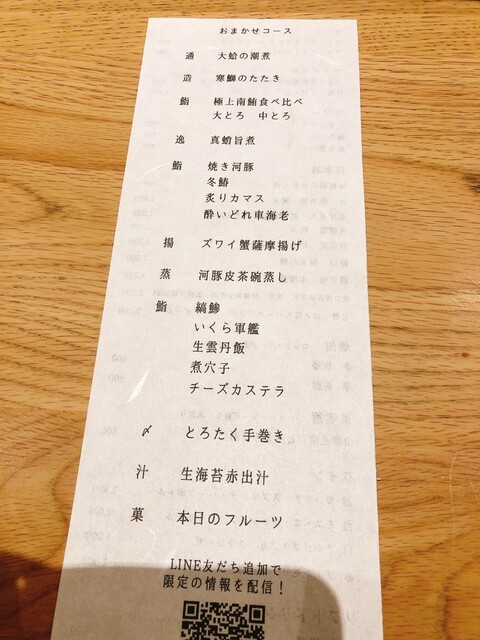 おまかせコース
通 大蛤の潮煮
造 寒鰤のたたき
鮨 極上南鮪食べ比べ
大とろ 中とろ
逸 真蛸旨煮
鮨 焼き河豚
冬鯖
炙りカマス
酔いどれ車海老
揚 ズワイ蟹薩摩揚げ
蒸 河豚皮茶碗蒸し
鮨 縞鯵
いくら軍艦
生雲丹飯
煮穴子
チーズカステラ
〆 とろたく手巻き
汁 生海苔赤出汁
菓 本日のフルーツ
LINE友だち追加で
限定の情報を配信！